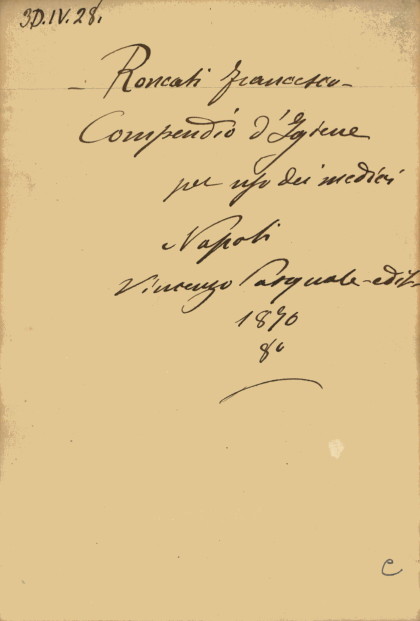 3D.IV.28.
- Roncati Francesco -
Compendio d'Igiene
per uso dei medici
Napoli
Vincenzo Pasquale - edit.
1870
8°
C